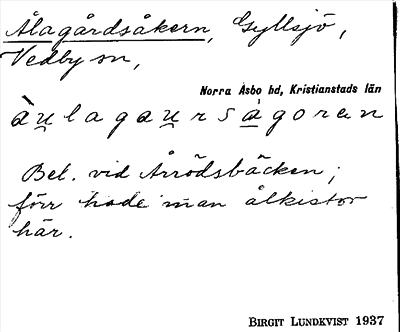 Ålagårdsåkern, Gyllsjö,
Vedby sn,
Norra Åsbo hd, Kristianstads län
àu̯lagau̯rsàgoren
Bel. vid Arrödsbäcken;
förr hade man ålkistor
här.
BIRGIT LUNDKVIST 1937